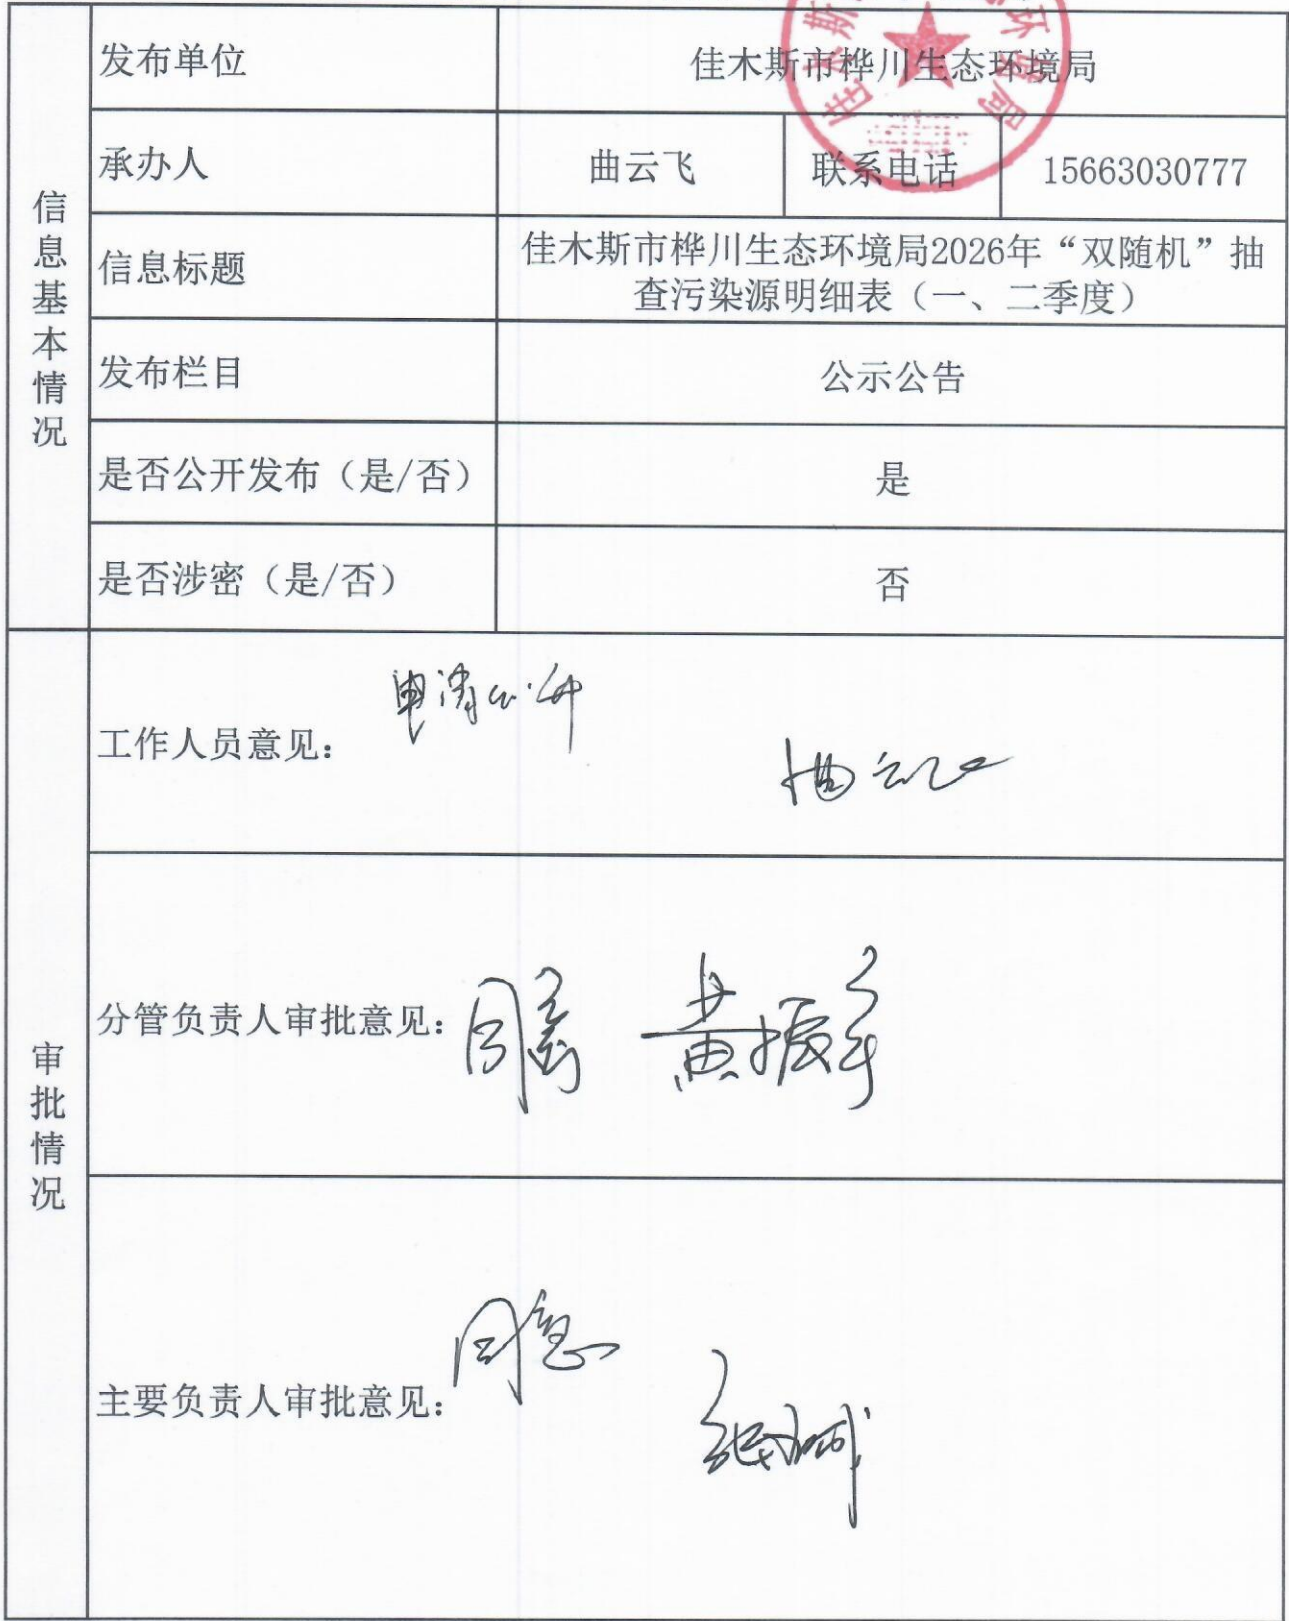 发布单位
佳木斯市桦川生态环境局
承办人
曲云飞
联系电话
15663030777
信息标题
佳木斯市桦川生态环境局2026年“双随机”抽
查污染源明细表（一、二季度）
发布栏目
公示公告
是否公开发布（是/否）
是
是否涉密（是/否）
否
信息基本情况
工作人员意见：
申请公开
曲云飞
分管负责人审批意见：
同意
黄振
主要负责人审批意见：
同意
审批情况